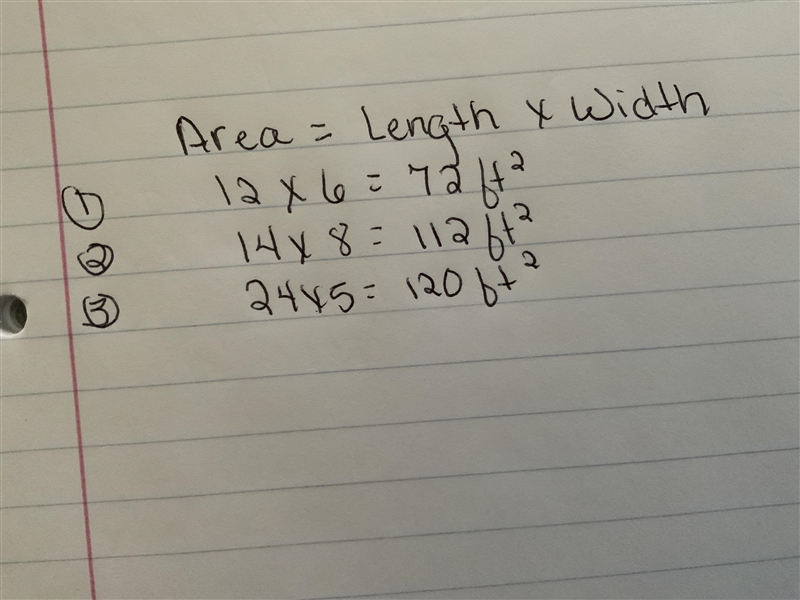 Area = Length x Width
① 12 x 6 = 72 ft²
② 14 x 8 = 112 ft²
③ 24 x 5 = 120 ft²